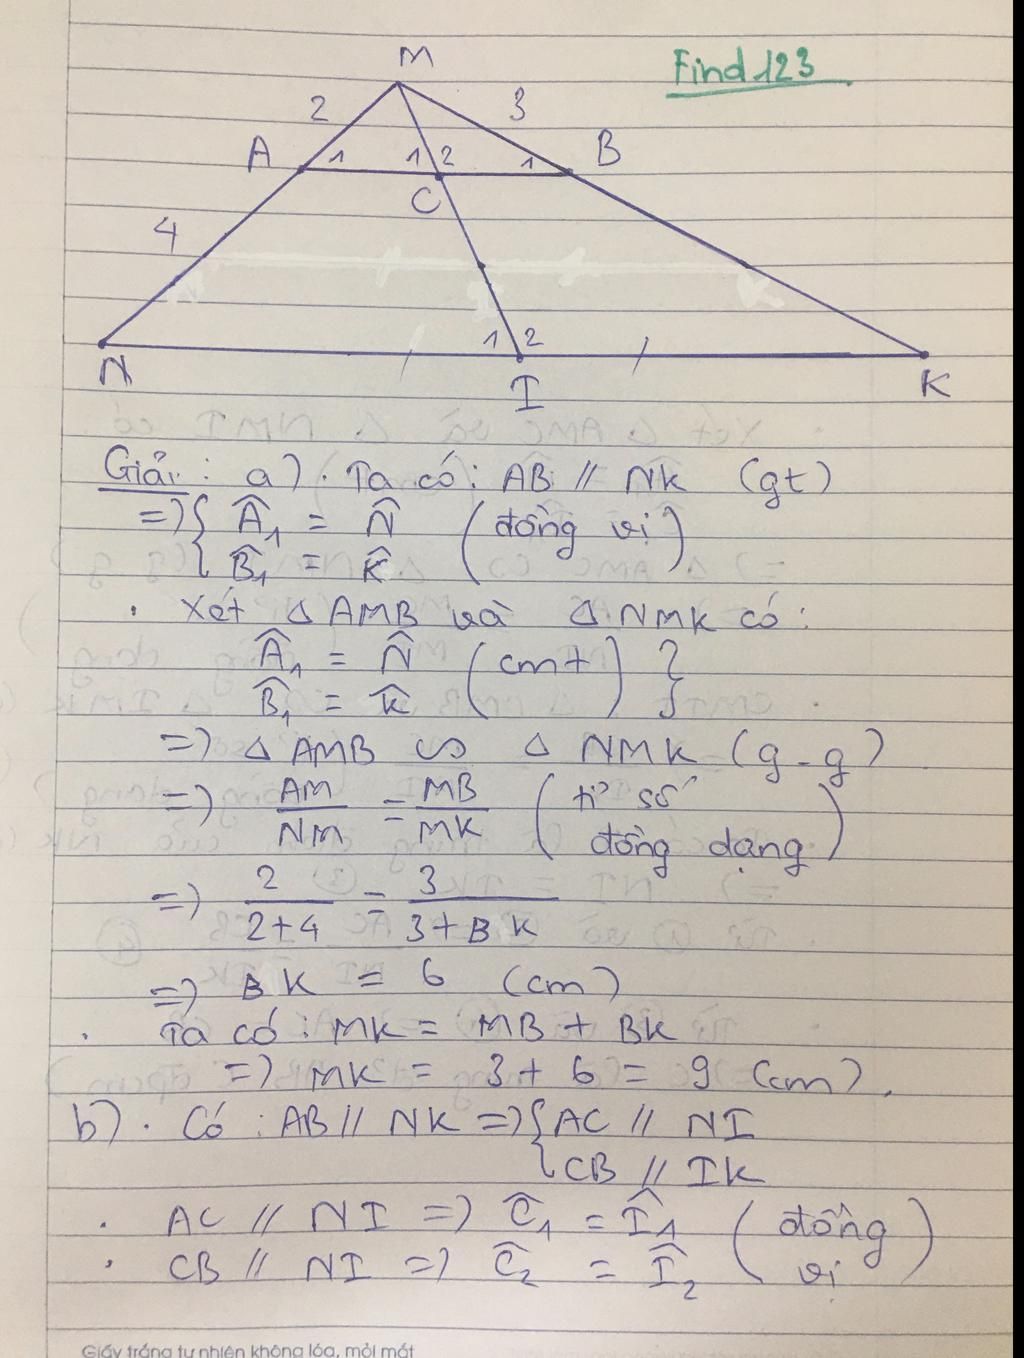 Find 123
M
2 3
A 1 1 2 1 B
C
4
1 2
N I K
Giải: a) . Ta có: AB // NK (gt)
=> { Â₁ = N̂ (đồng vị)
B̂₁ = K̂
. Xét Δ AMB và Δ NMK có:
Â₁ = N̂ (cmt) }
B̂₁ = K̂
=> Δ AMB ∽ Δ NMK (g-g)
=> AM/NM = MB/MK (tỉ số đồng dạng)
=> 2/(2+4) = 3/(3+BK)
=> BK = 6 (cm)
. Ta có: MK = MB + BK
=> MK = 3 + 6 = 9 (cm).
b) . Có: AB // NK => { AC // NI
CB // IK
. AC // NI => Ĉ₁ = Î₁ (đồng vị)
. CB // NI => Ĉ₂ = Î₂
Giấy trắng tự nhiên không lóa, mỏi mắt